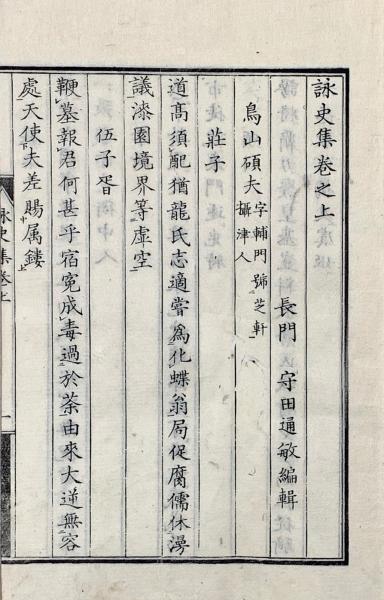 詠史集巻之上
長門 守田通敏編輯
鳥山碩夫 字輔門號芝軒
攝津人
莊子
道髙須配猶龍氏志適嘗爲化蝶翁局促腐儒休漫
議漆園境界等虚空
伍子胥
鞭墓報君何甚乎宿寃成毒過於荼由來大逆無容
處天使夫差賜属鏤
詠史集巻上
一